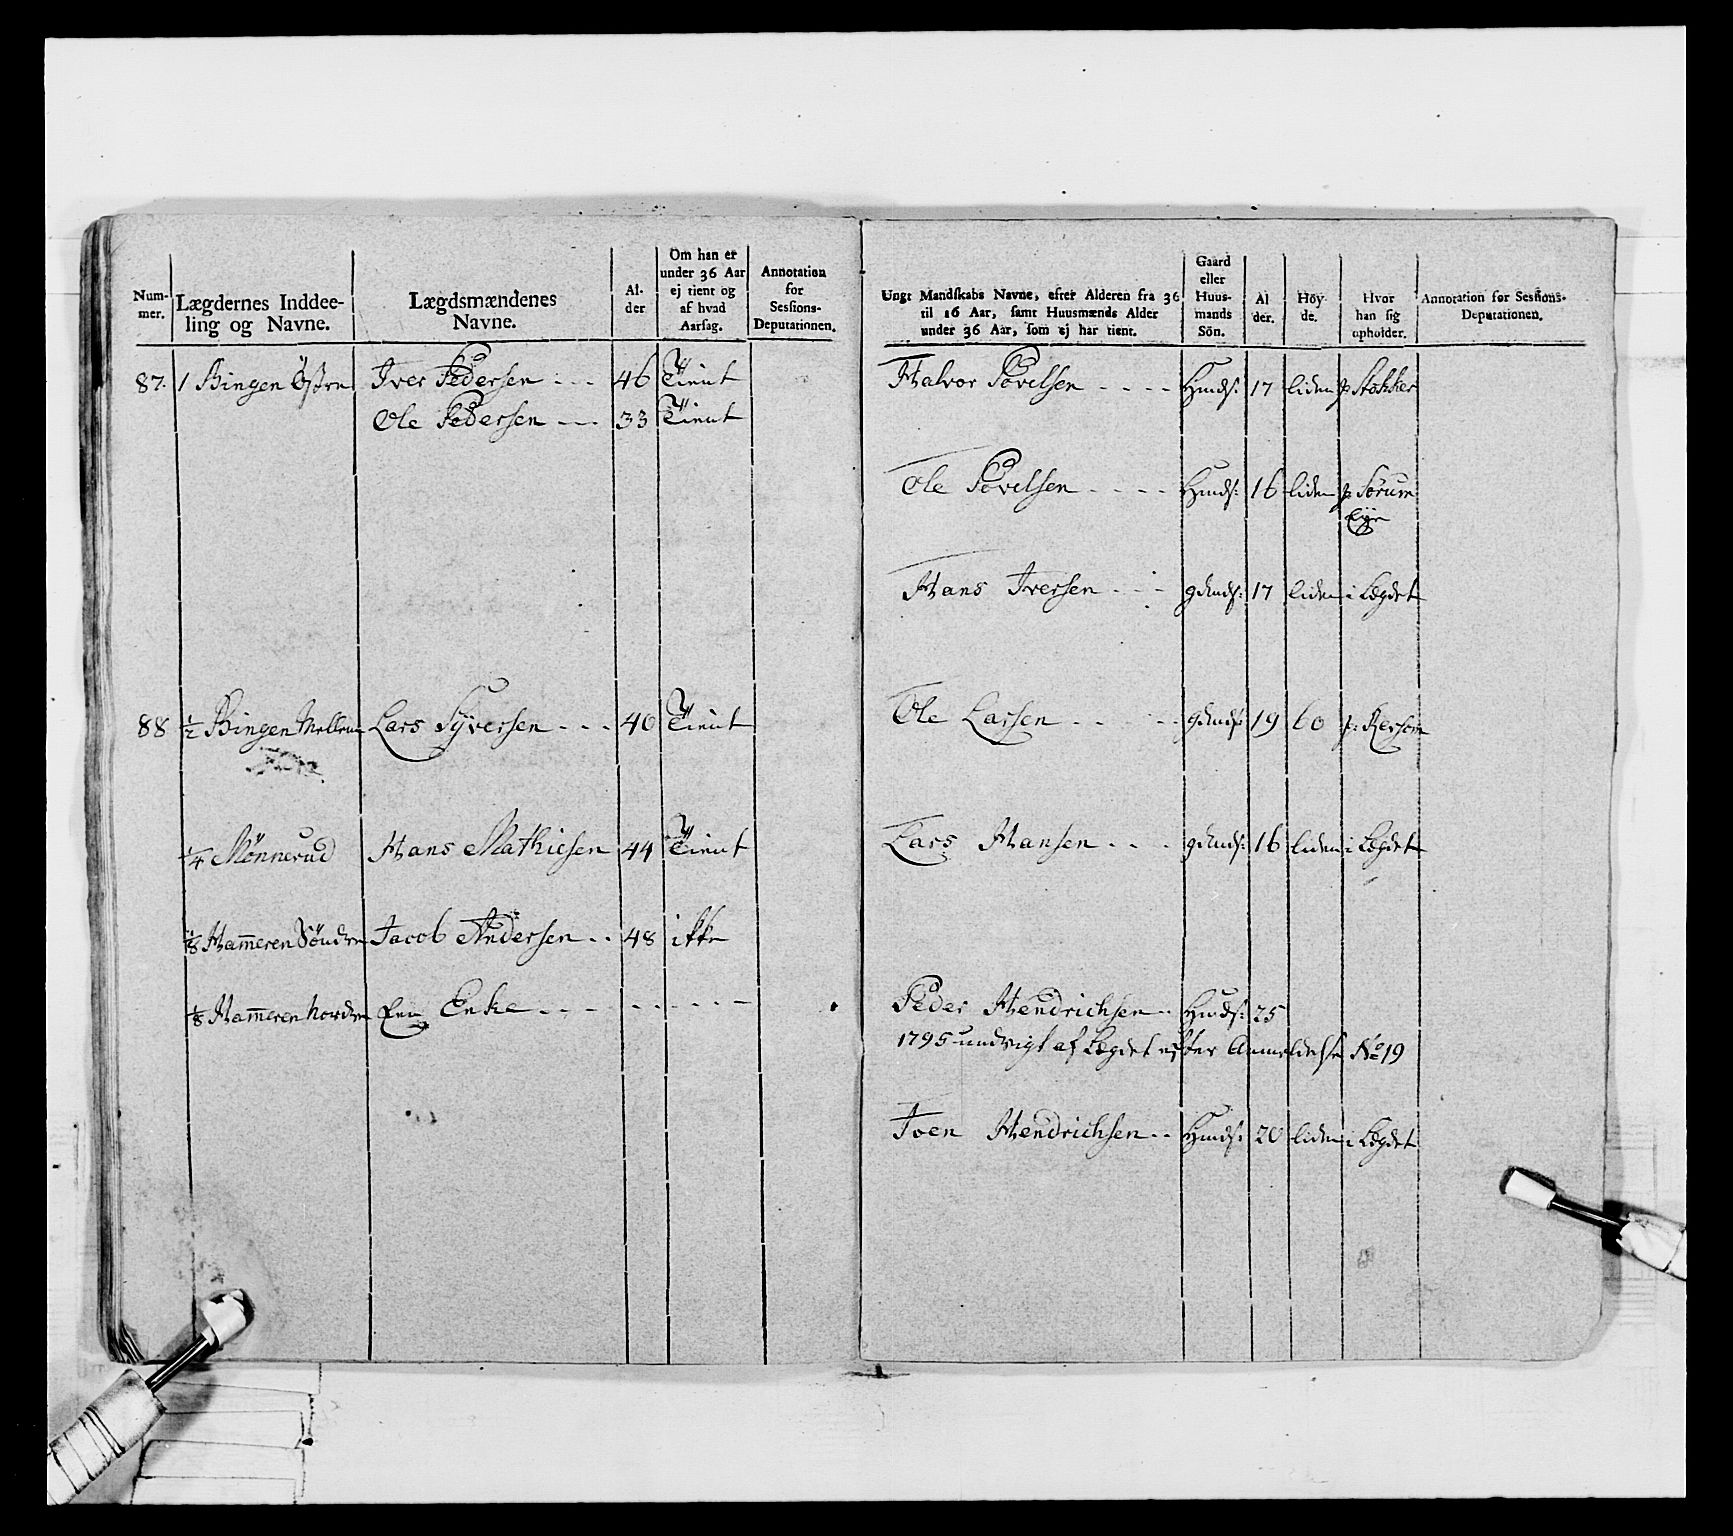 Num-
mer.
Lægdernes Inddee-
ling og Navne.
Lægdsmændenes
Navne.
Al-
der
Om han er
under 36 Aar
ej tient og
af hvad
Aarsag.
Annotation
for
Sessions-
Deputationen.
87. 1 Bingen Östre Iver Pedersen - - - 46 Tient
Ole Pedersen - - - 33 Tient
88 1/2 Bingen Mellem Lars Syversen - - - 40 Tient
1/4 Mönnerud Hans Mathiesen 44 Tient
1/8 Ham̅eren Söndre Jacob Andersen - - 48 ikke
1/8 Ham̅eren Nordre Een Enke - - - - - - - - -
Ungt Mandskabs Navne, efter Alderen fra 36
til 16 Aar, samt Huusmænds Alder
under 36 Aar, som ej har tient.
Gaard
eller
Huus-
mands
Sön.
Al
der.
Höy-
de.
Hvor
han sig
opholder.
Annotation for Sessions-
Deputationen.
Halvor Povelsen - - - - Hmds: 17 liden p: Stokker
Ole Povelsen - - - - Hmds: 16 liden p: Sörum
Eye
Hans Iversen - - - gdmds: 17 liden i Lægdet
Ole Larsen - - - - - gdmds: 19 60 p:
Lars Hansen - - - gdmds: 16 liden i Lægdet
Peder Hendrichsen - - Hmds: 25
1795 undvigt af Lægdet efter Anmeldelse No 19
Iven Hendrichsen - - Hmds: 20 liden i Lægdet